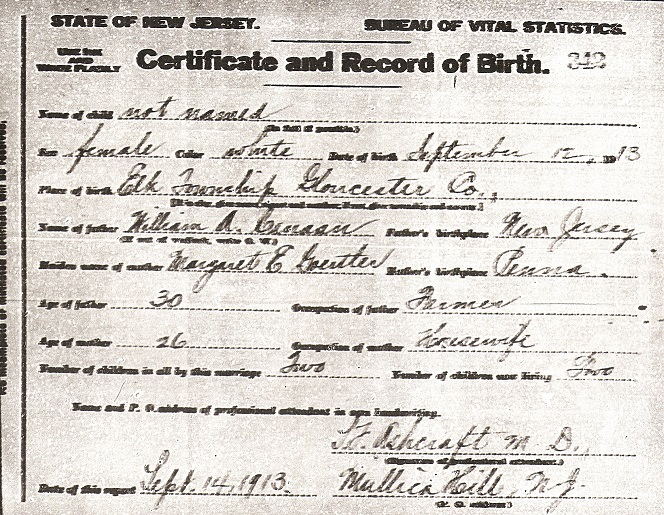 STATE OF NEW JERSEY. BUREAU OF VITAL STATISTICS.
USE INK AND WRITE PLAINLY
Certificate and Record of Birth. 342
Name of child not named
(In full if possible.)
Sex female Color white Date of birth September 12, 1913
Place of birth Elk Township Gloucester Co.,
Name of father William A. Father's birthplace New Jersey
(If out of wedlock, write O. W.)
Maiden name of mother Margaret E Goertler Mother's birthplace Penna.
Age of father 30 Occupation of father Farmer
Age of mother 26 Occupation of mother Housewife
Number of children in all by this marriage Two Number of children now living Two
Name and P. O. address of professional attendant in own handwriting.
Ashcraft M. D.,
(Signature of professional attendant.)
Date of this report Sept. 14, 1913. Mullica Hill, N. J.
(P. O. address.)